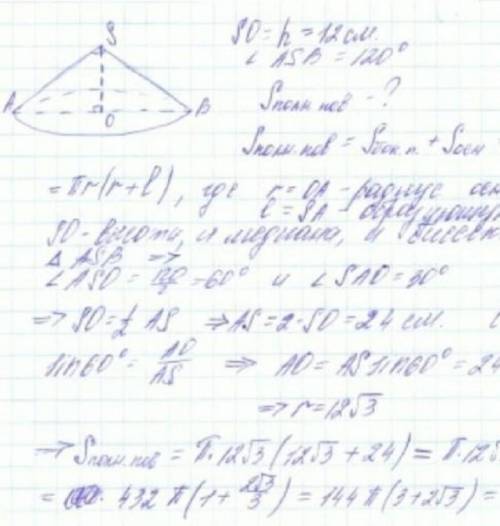 S
A
O
B
SO = h = 12 см.
∠ ASB = 120°
Sполн.пов - ?
Sполн.пов = Sбок.п. + Sосн
= πr(r+l), где r = OA - радиус осн
l = SA - образующ
SO - высота, и медиана, и биссект
Δ ASB ⇒
∠ASO = 120/2 = 60° и ∠SAO = 30°
⇒ SO = 1/2 AS ⇒ AS = 2·SO = 24 см.
sin60° = AO/AS ⇒ AO = AS sin60° = 24
⇒ r = 12√3
⇒ Sполн.пов = π·12√3(12√3 + 24) = π·12√
= 432 π(1 + 2√3/3) = 144π(3+2√3) =